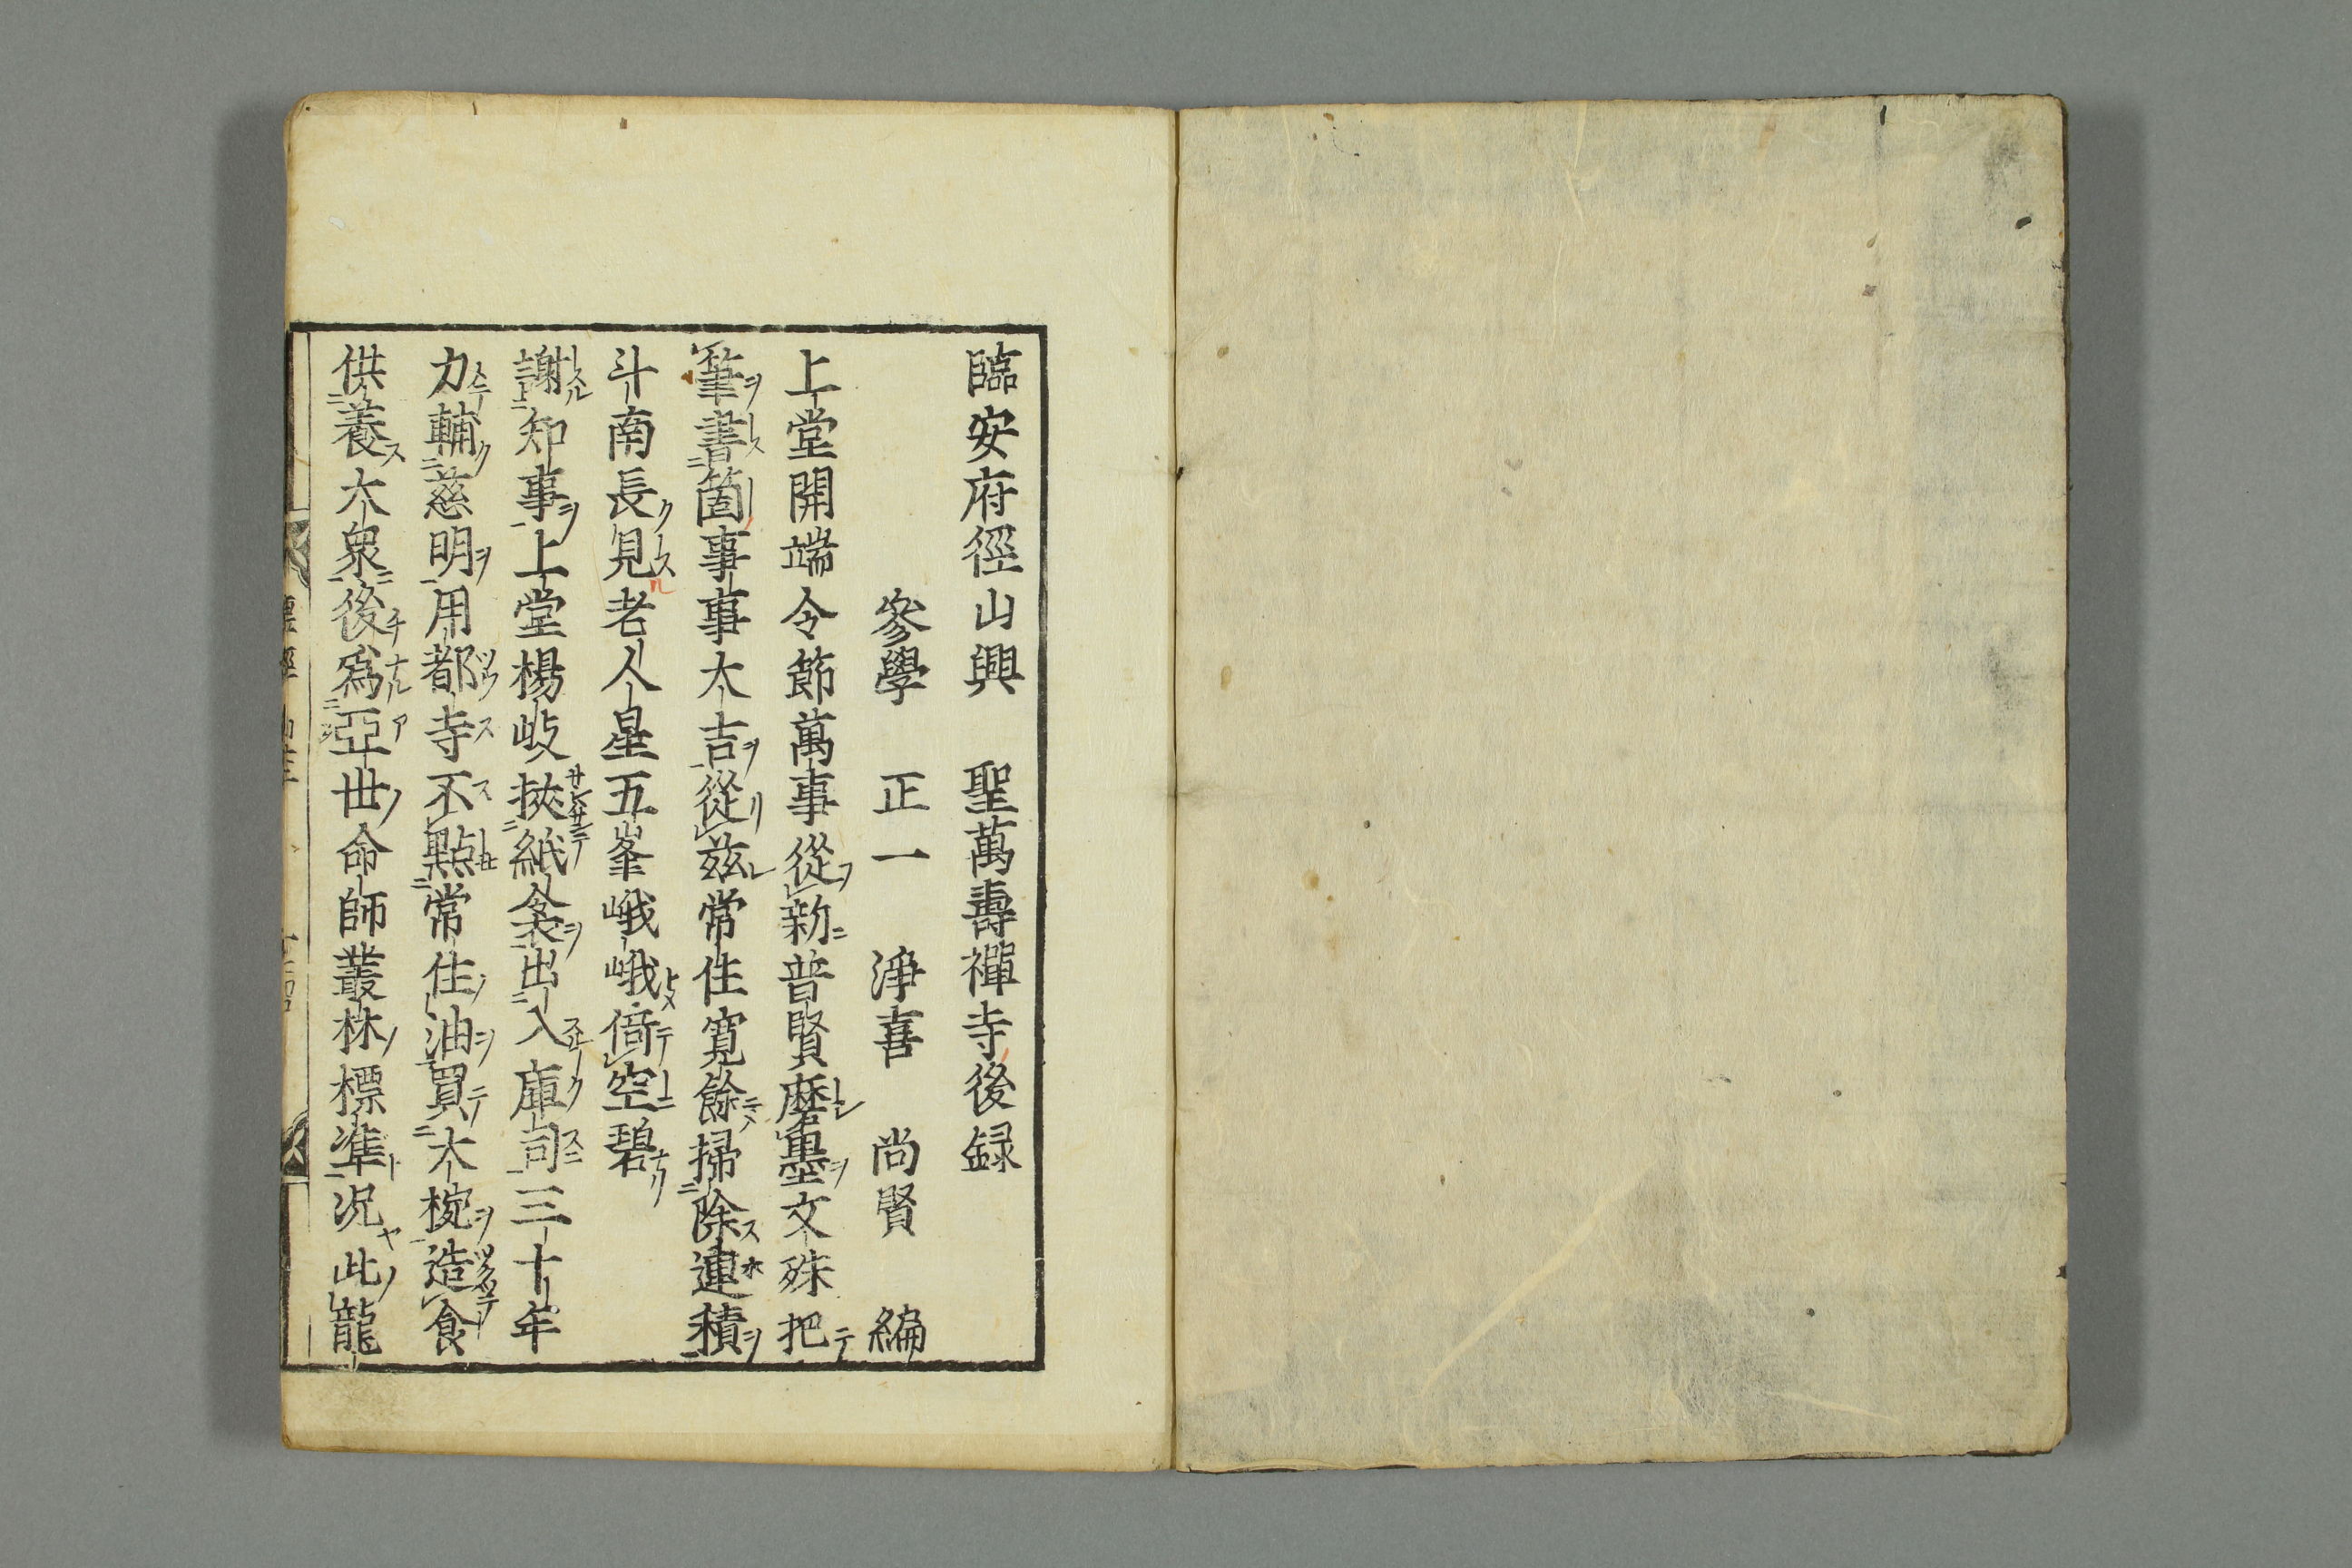 臨安府徑山興　聖萬壽禪寺後録
參學　正一　淨喜　尚賢　編
上堂開端令節萬事從新普賢磨墨文殊把
筆書箇事事大吉從茲常住寬餘掃除逋積
斗南長見老人星五峯峨峨倚空碧
謝知事上堂楊岐挾紙衾出入庫司三十年
力輔慈明用都寺不點常住油買大椀造食
供養大衆後爲亞世命師叢林標準況此龍